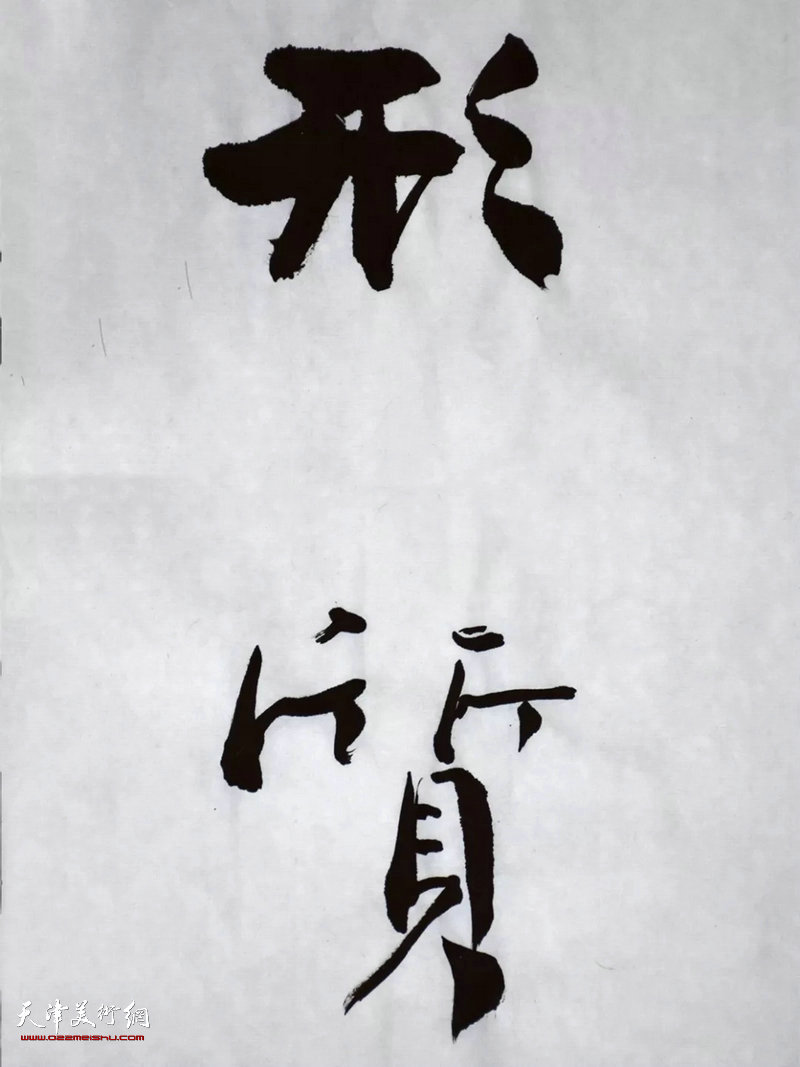 形
質
天津美術網
www.022meishu.com